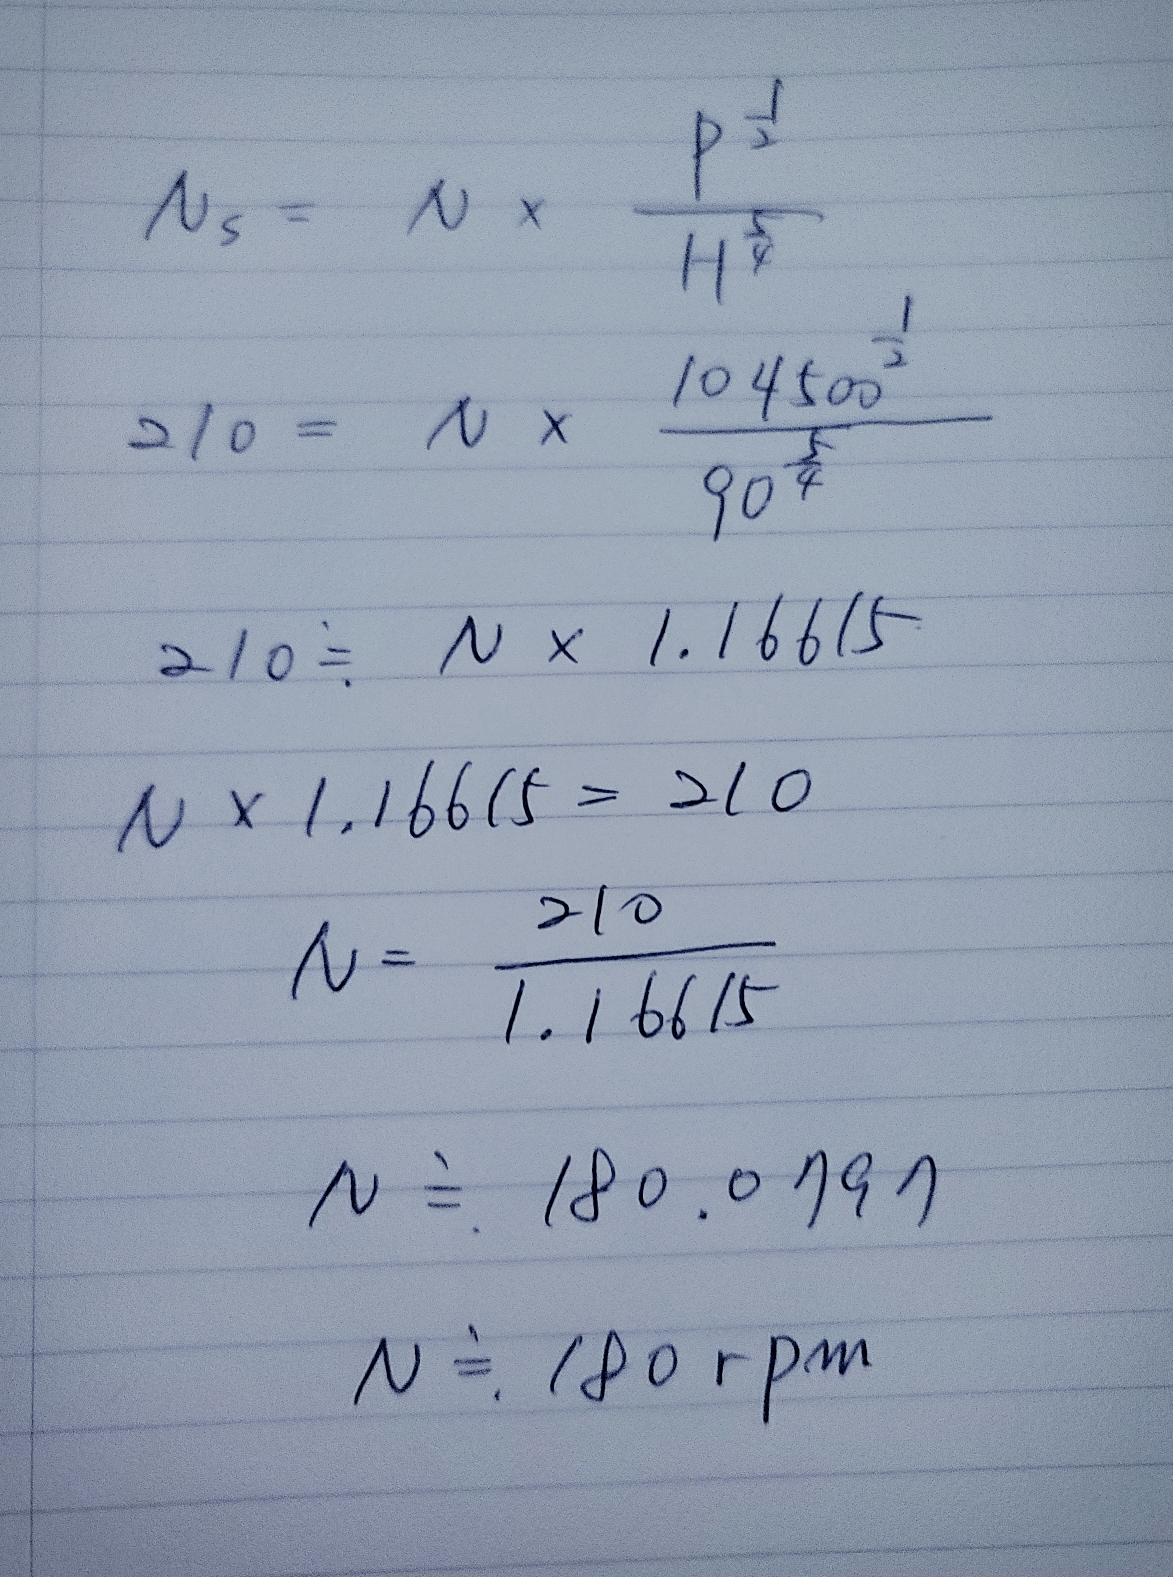 Ns = N × P^(1/2) / H^(5/4)
210 = N × 104500^(1/2) / 90^(5/4)
210 ≒ N × 1.16615
N × 1.16615 = 210
N = 210 / 1.16615
N ≒ 180.0797
N ≒ 180rpm